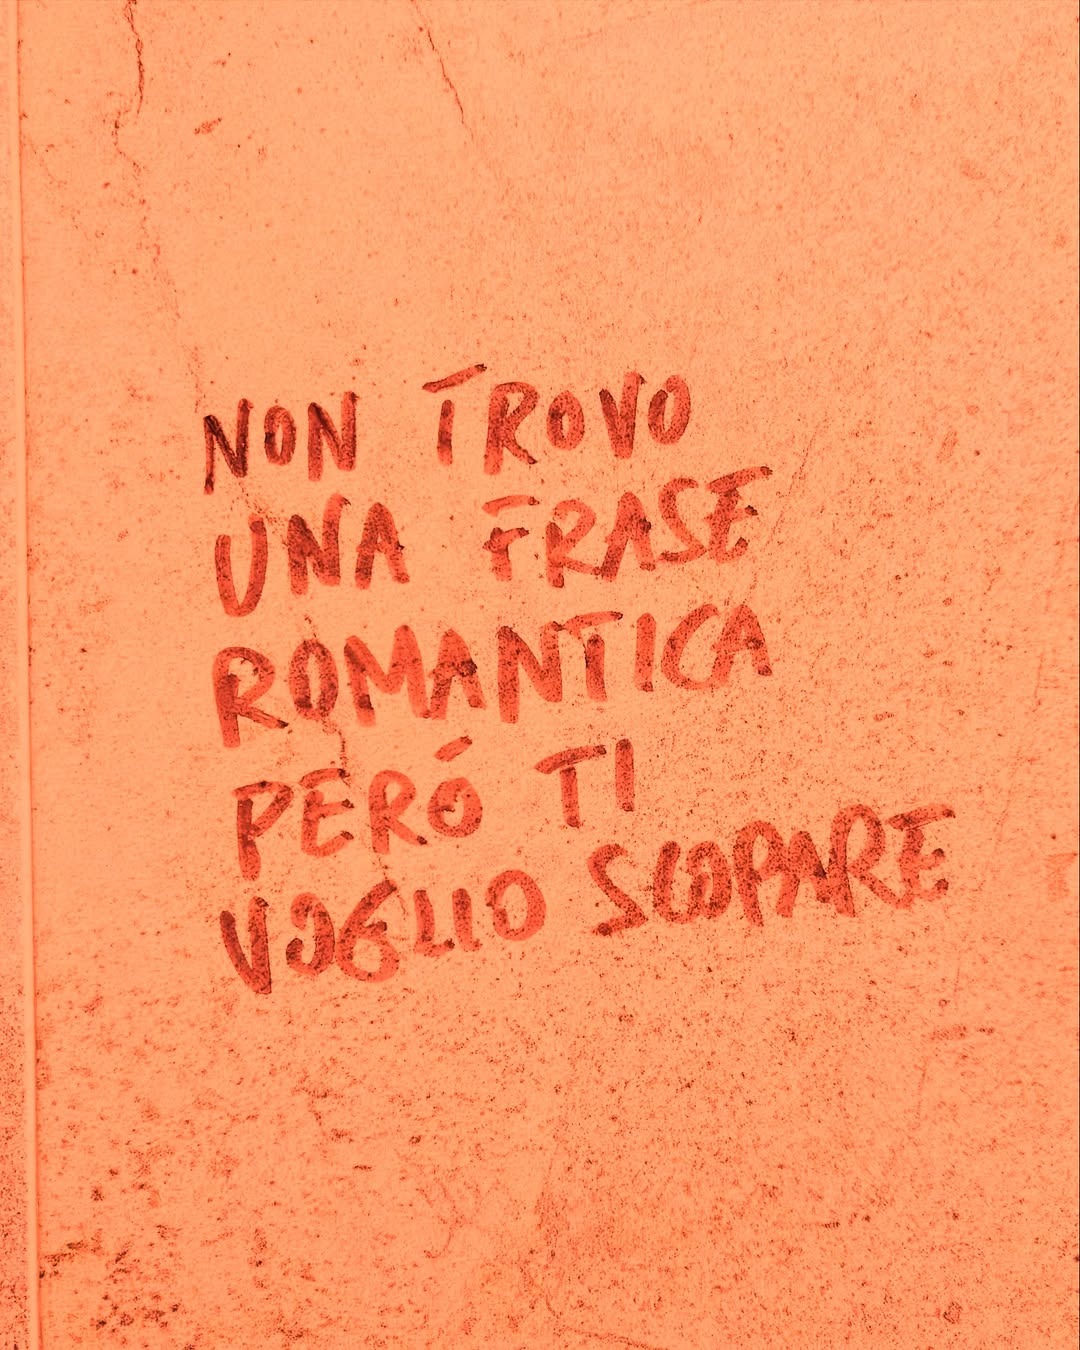 NON TROVO
UNA FRASE
ROMANTICA
PERÓ TI
VOGLIO SCOPARE